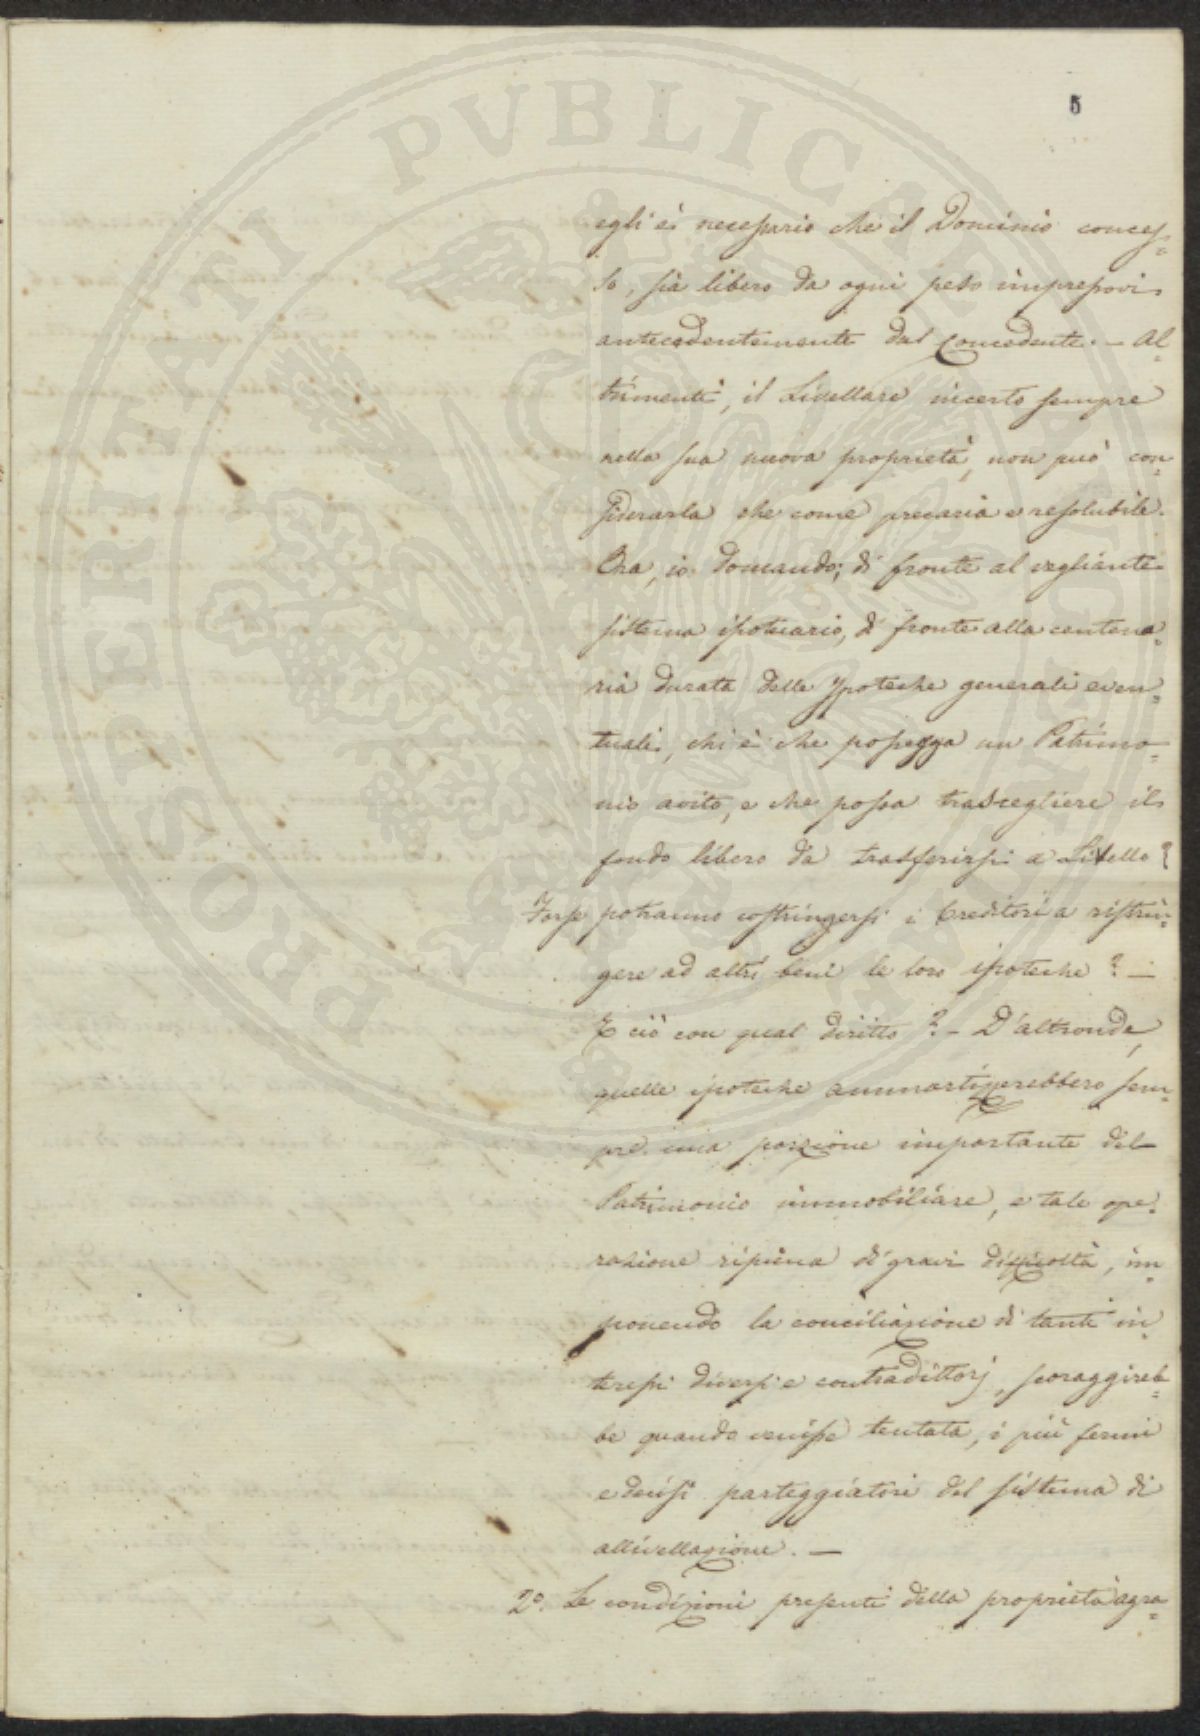 5
egli è necessario che il Dominio conces=
so, sia libero da ogni peso impressovi
antecedentemente dal Concedente. — Al=
trimenti, il Livellare incerto sempre
nella sua nuova proprietà, non può con=
siderarla che come precaria e resolubile.
Ora, io domando; di fronte al vegliante
sistema ipotecario, di fronte alla centena=
ria durata delle Ypoteche generali even=
tuali, chi è che possegga un Patrimo=
nio avito, e che possa trascegliere il
fondo libero da trasferirsi a Livello?
Forse potranno costringersi i Creditori a ristrin=
gere ad altri beni le loro ipoteche? —
E ciò con qual diritto? — D'altronde,
quelle ipoteche ammortizerebbero sem=
pre una porzione importante del
Patrimonio immobiliare, e tale ope=
razione ripiena di gravi difficoltà, im=
ponendo la conciliazione di tanti in=
teressi diversi e contradittorj, scoraggireb=
be quando venisse tentata, i più fermi
e decisi parteggiatori del sistema di
allivellazione. —
2º. Le condizioni presenti della proprietà agra=
PROSPERITATI PUBLICAE